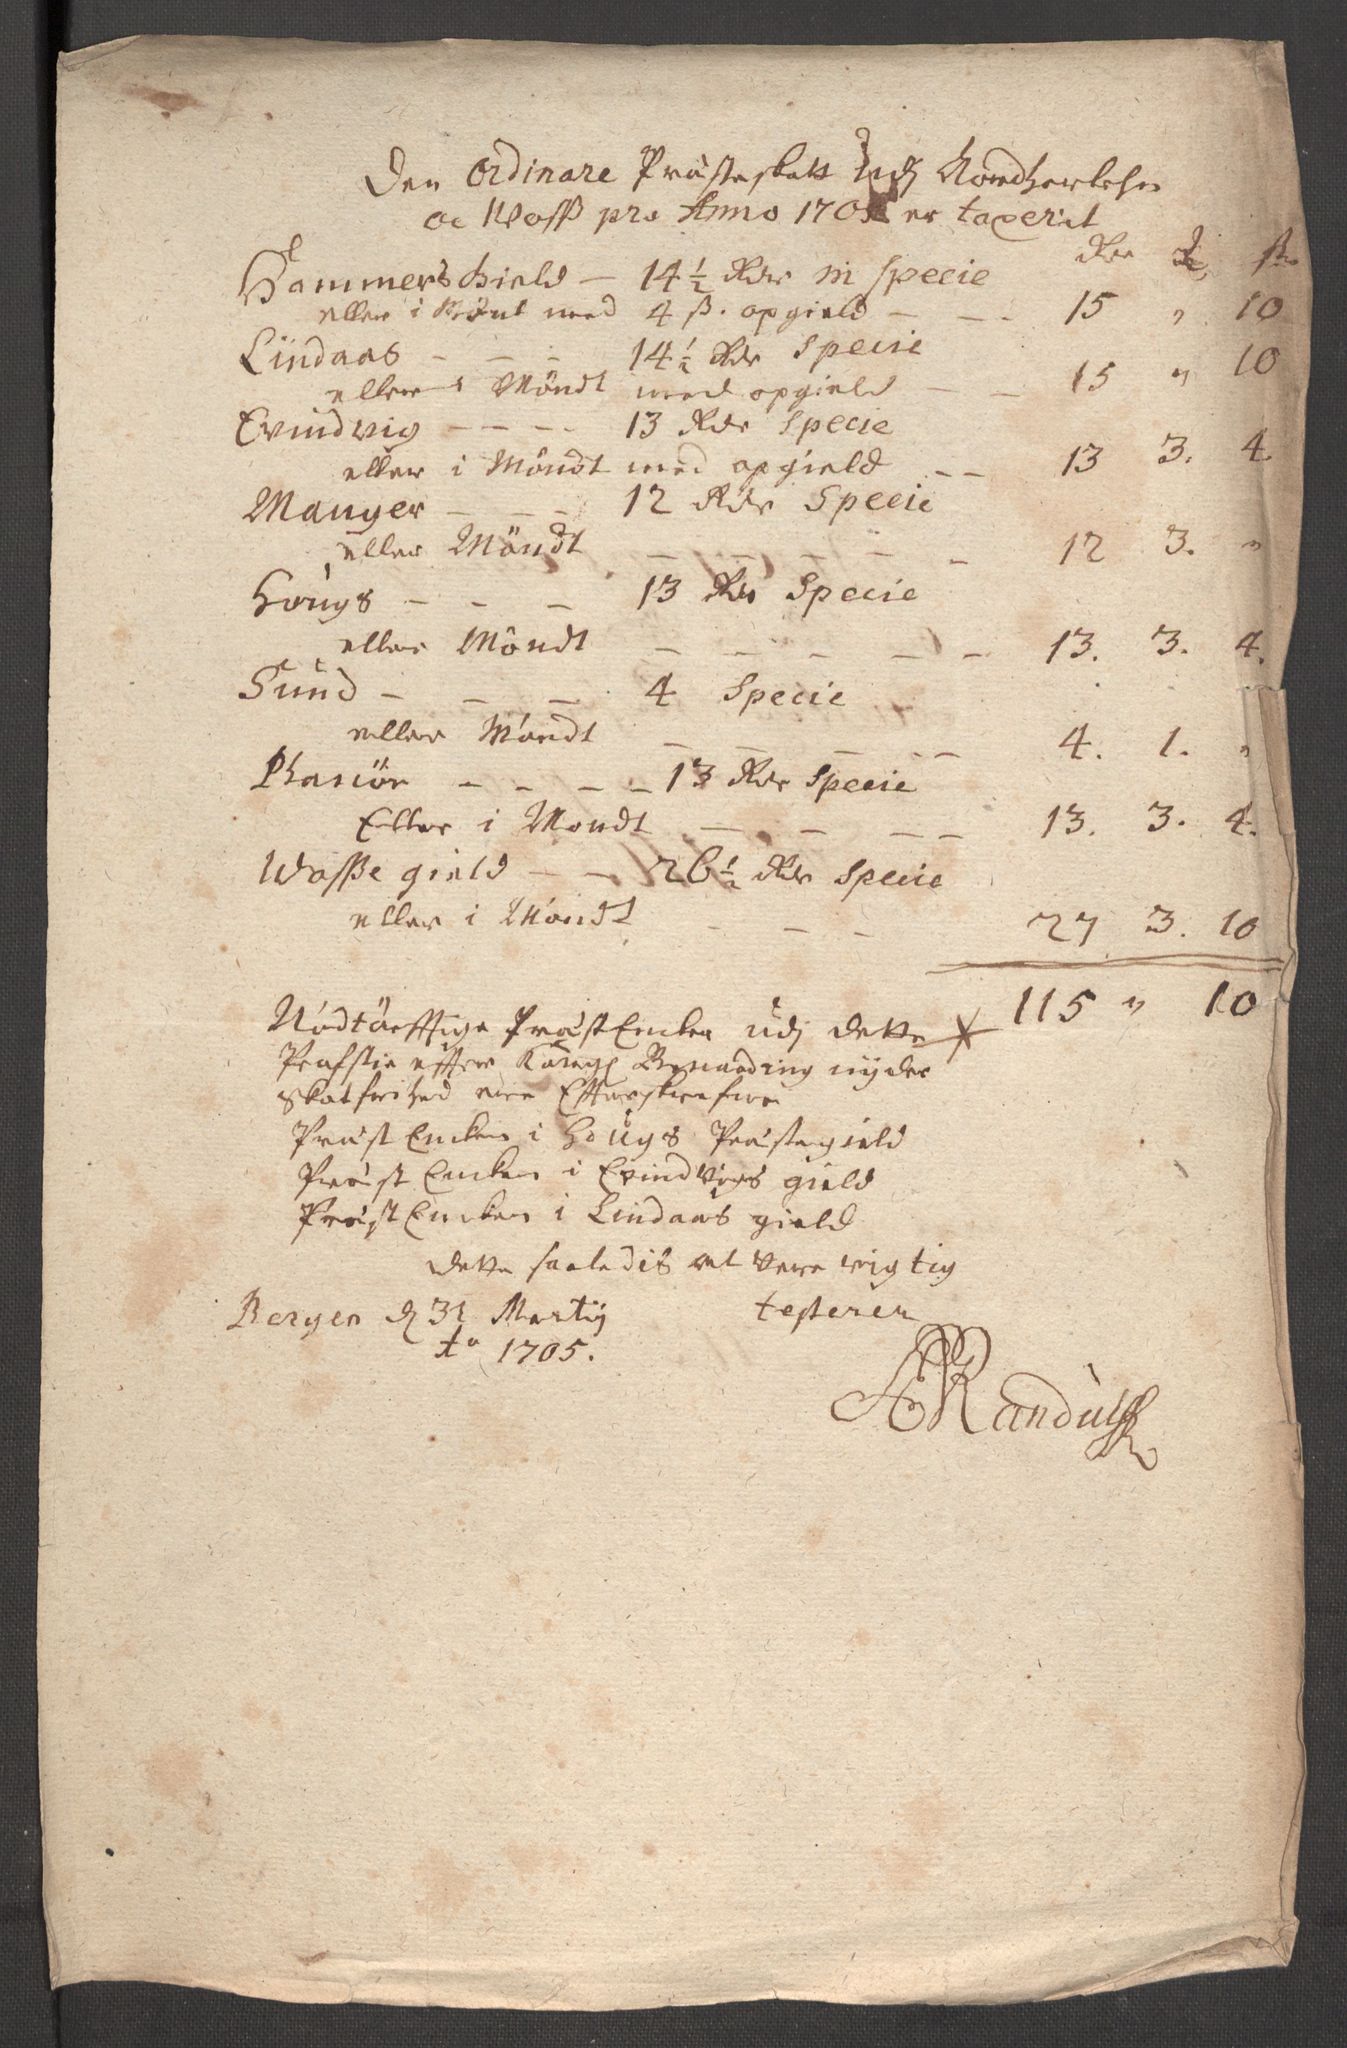 Den Ordinare Prästeskatt udj Nordhorlehn
oc Woss pro Anno 170 er taxerit
Rdr ß
Hammers Gield - 14½ Rdr in Specie
eller i Mönt med 4 ß. opgield - - - 15 " 10
Lindaas - - - 14½ Rdr Specie
eller i Möndt med opgield - - 15 " 10
Evindvig - - - - 13 Rdr Specie
eller i Möndt med opgield - - 13 3. 4.
Manger - - - 12 Rdr Specie
eller Möndt - - - - - 12 3. "
Hougs - - - 13 Rdr Specie
eller Möndt - - - - - 13. 3. 4.
Sund - - - 4 Specie
eller Möndt - - - - - 4. 1. "
Phanöe - - - - 13 Rdr Specie
Eller i Mondt - - - - 13. 3. 4.
Wosse gield - - 26½ Rdr Specie
eller i Möndt - - - 27 3. 10
115 " 10
Nödtörfftige PrästEncker udj dette
Profstie effter Kongl nyder
skatfrihed
Präst Encken i Hougs Prästegield
Präst Encken i Evindvigs gield
Präst Encken i Lindaas gield
Dette saaledis at være rigtig
Bergen d 31 Martij testerer
Ao 1705.
ARandulff